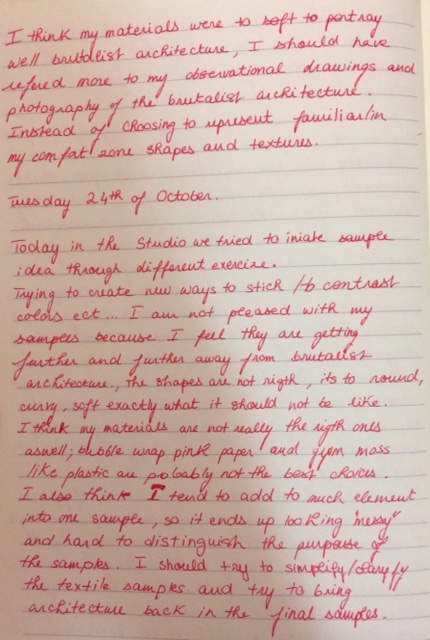 I think my materials were to soft to portray
well brutalist architecture, I should have
refered more to my observational drawings and
photography of the brutalist architecture.
Instead of choosing to represent familiar/in
my comfort zone shapes and textures.
Tuesday 24th of October.
Today in the Studio we tried to iniate sample
idea through different exercise.
Trying to create new ways to stick /to contrast
colors ect... I am not pleased with my
samples because I feel they are getting
further and further away from brutalist
architecture., the shapes are not rigth, its to round,
curvy, soft exactly what it should not be like.
I think my materials are not really the rigth ones
aswell; bubble wrap pink paper and mass
like plastic are probably not the best choices.
I also think I tend to add to much element
into one sample, so it ends up looking "messy"
and hard to distinguish the purpose of
the samples. I should try to simplify/claryfy
the textile samples and try to bring
architecture back in the final samples.